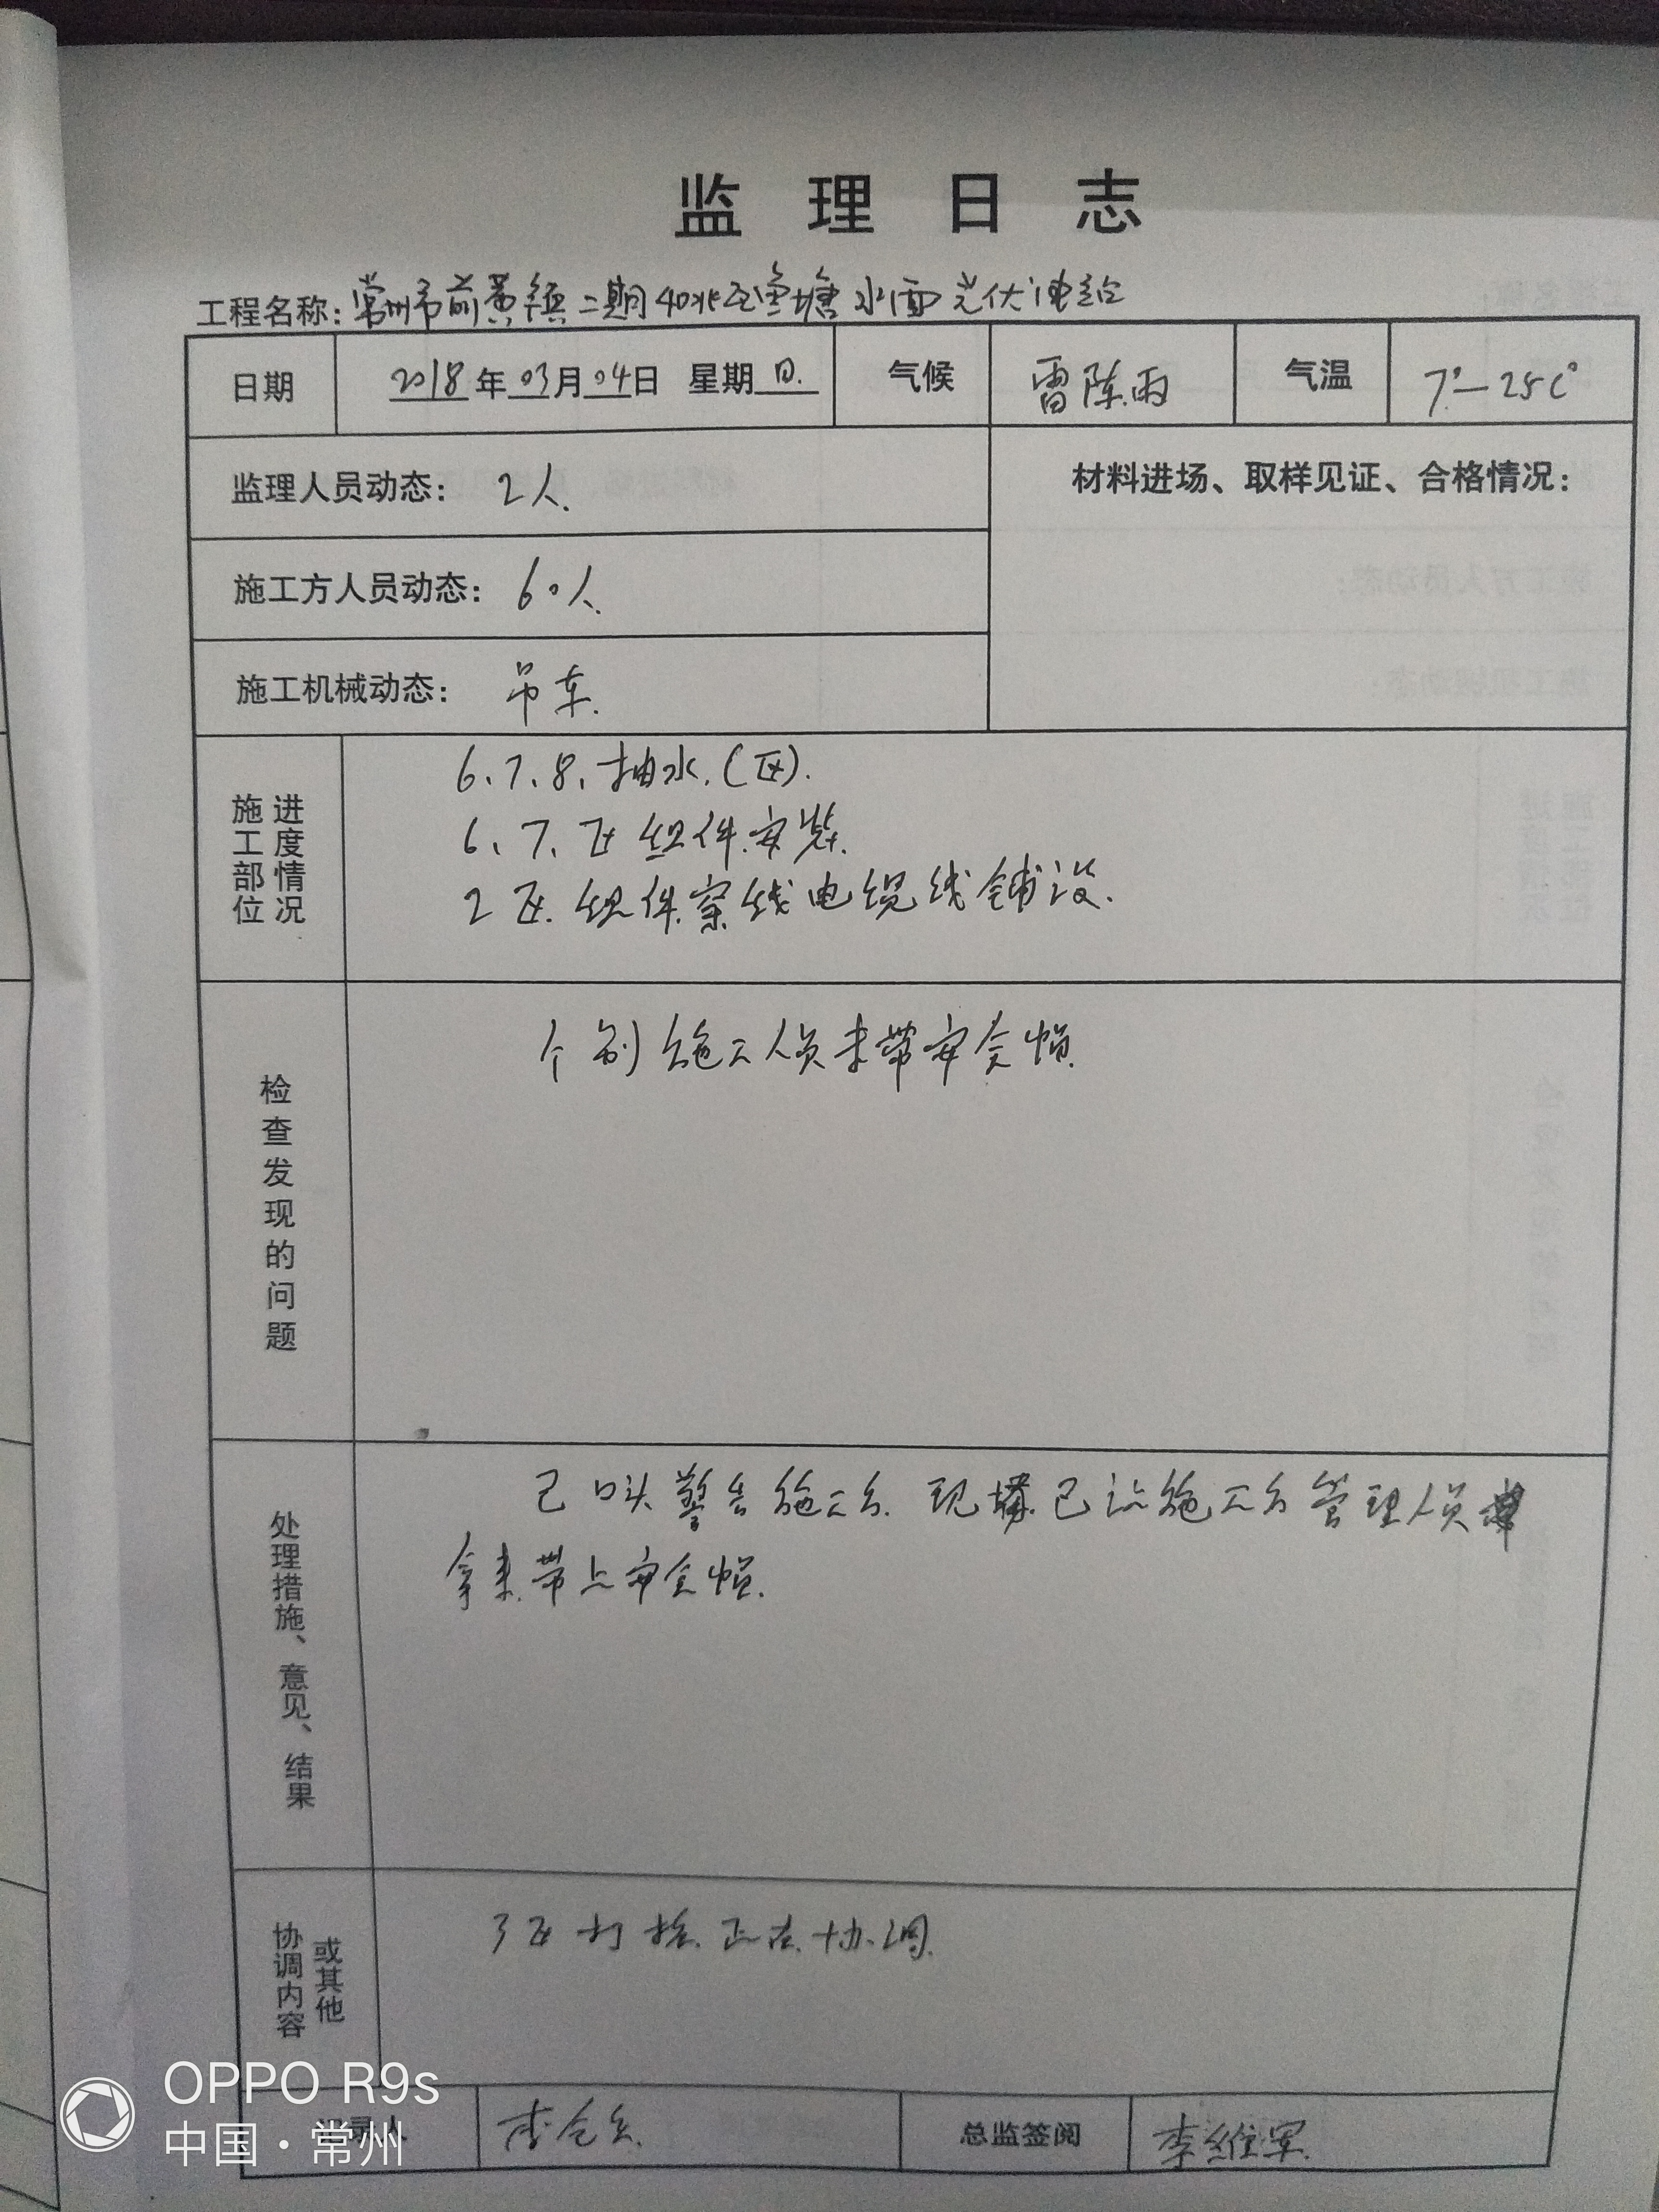 监理日志
工程名称：常州市前黄镇二期40兆瓦鱼塘水面光伏
日期 2018年03月04日 星期日. 气候 雷阵雨 气温 7°-25C°
监理人员动态： 2人.
材料进场、取样见证、合格情况：
施工方人员动态： 60人.
施工机械动态： 吊车.
施工部位 进度情况
6、7、8、抽水.(区).
6、7、区组件安装.
2区.组件穿线电缆线铺设.
检查发现的问题
个别施工人员未带安全帽.
处理措施、意见、结果
已口头警告施工方.现场已让施工方管理人员
拿来.带上安全帽.
协调内容 或其他
3区打桩.正在协调.
录人 李 总监签阅 李维军.
OPPO R9s
中国·常州